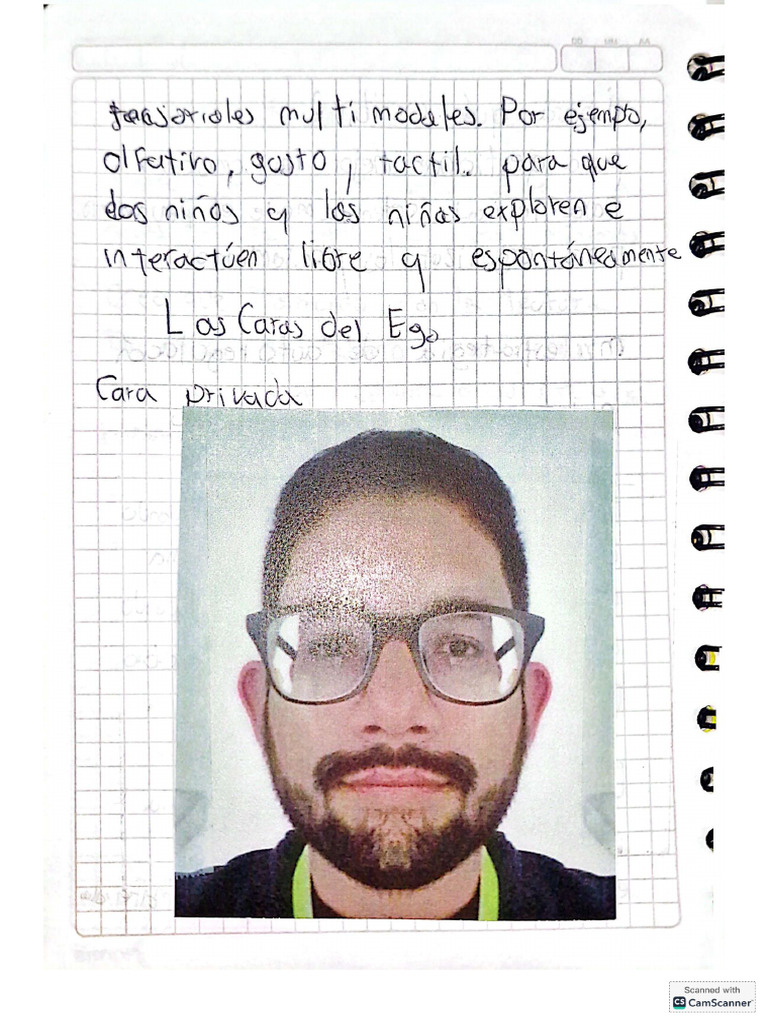 multi modales. Por ejempo,
olfativo, gusto, tactil. para que
los niños y las niñas exploren e
interactúen libre y espontáneamente
Las Caras del Ego
Cara privada
Scanned with
CS CamScanner